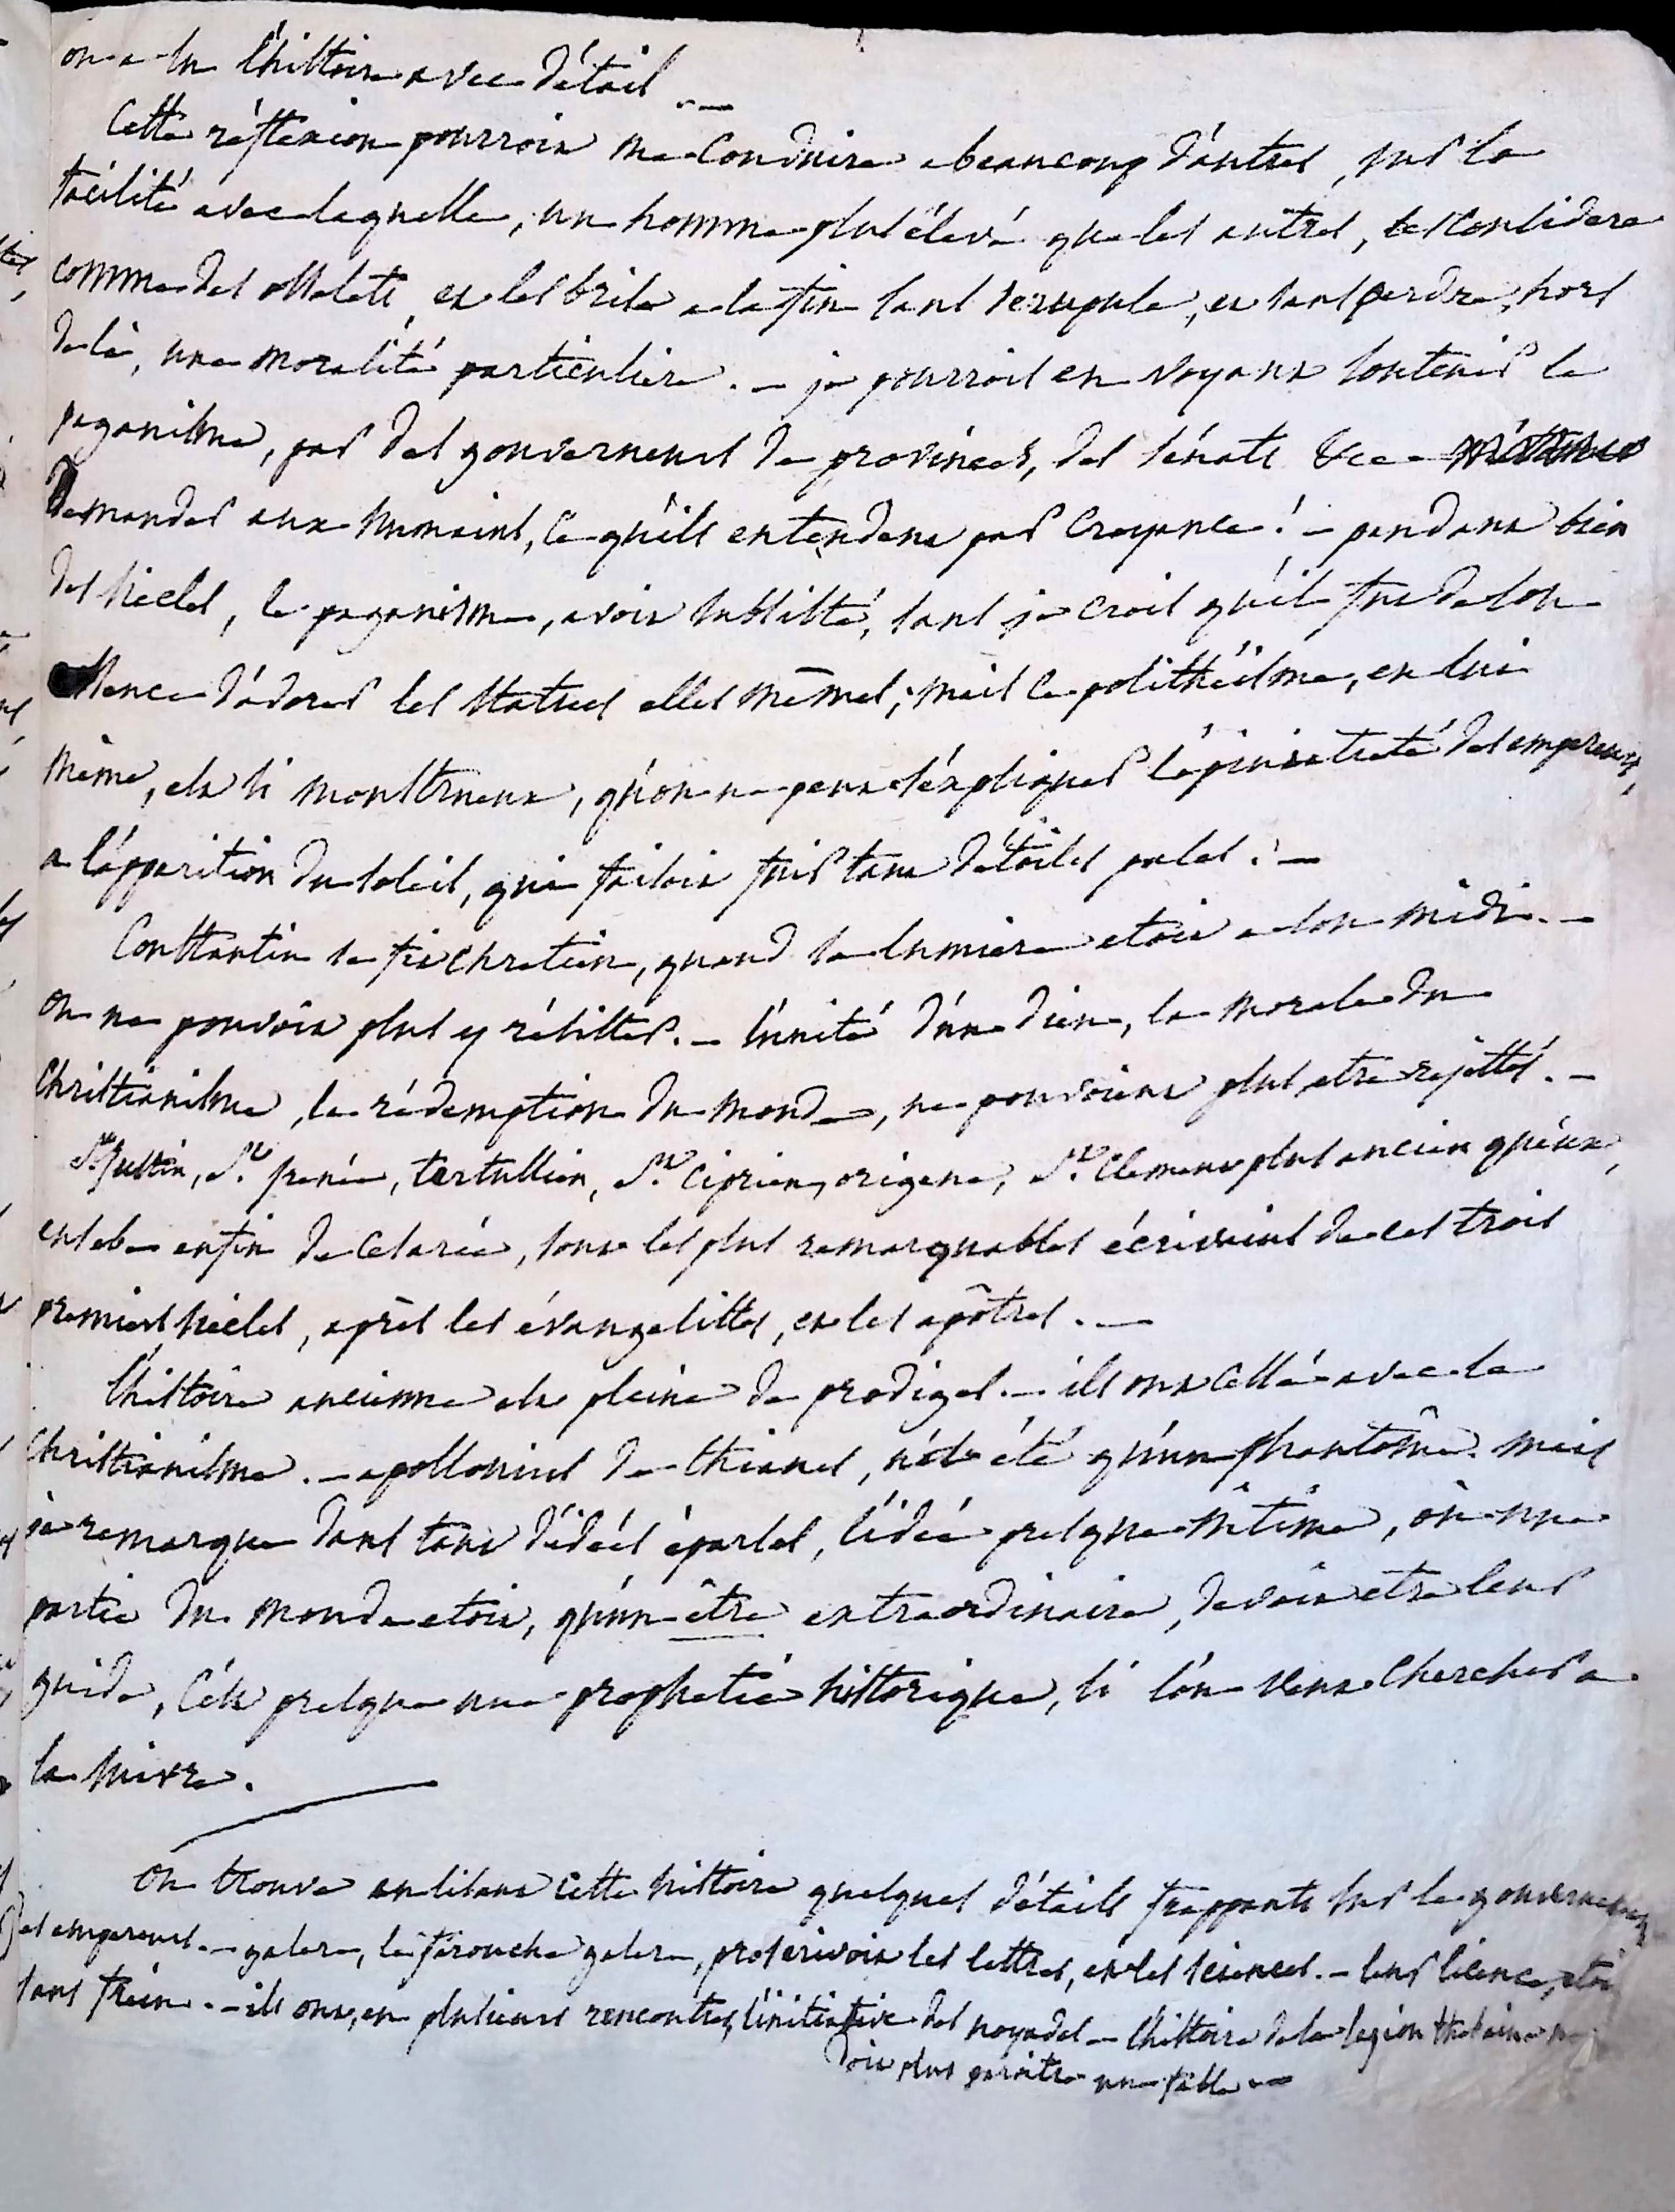 on a lu l'histoire avec détail. —
Cette réflexion pourroit me conduire a beaucoup d'autres, sur la
facilité avec laquelle, un homme plus élevé que les autres, les considere
comme des osselets, et les brise a la fin sans scrupule, et sans perdre, hors
de là, une moralité particuliere. — je pourrois en voyant soutenir le
paganisme, par des gouverneurs de provinces, des sénats &c.
demander aux humains, ce qu'ils entendent par croyance! — pendant bien
des siecles, le paganisme, avoit subsisté, sans je crois qu'il fut de son
essence d'adorer les statues elles mêmes; mais le politheisme, en lui
même, est si monstrueux, qu'on ne peut s'expliquer l'opiniatreté des empereurs,
a l'apparition du soleil, qui faisoit fuir tant d'étoiles pales. —
Constantin se fit chretien, quand la lumiere etoit a son midi. —
on ne pouvoit plus y résister. — l'unité d'un dieu, la morale du
christianisme, la rédemption du monde, ne pouvoient plus etre rejettés. —
St Justin, St. Irenée, tertullien, St. Ciprien, origene, St. Clement plus ancien qu'eux,
eusebe enfin de Cesarée, sont les plus remarquables écrivains de ces trois
premiers siecles, après les évangelistes, et les apôtres. —
l'histoire ancienne est pleine de prodiges. — ils ont cessé avec le
christianisme. — apollonius de thianes, n'est été qu'un phantôme. mais
je remarque dans tant d'idées éparses, l'idée presque intime, où une
partie du monde etoit, qu'un être extraordinaire, devoit etre leur
guide, c'est presque une prophetie historique, si l'on veut chercher a
la suivre.
On trouve en lisant cette histoire quelques détails frappants sur le gouvernement
des empereurs. — galere, le farouche galere, proscrivoit les lettres, et les sciences. — leur licence, etoit
sans frein. — ils ont, en plusieurs rencontres, l'initiative des noyades — l'histoire de la legion thebaine ne
doit plus paroitre une fable —